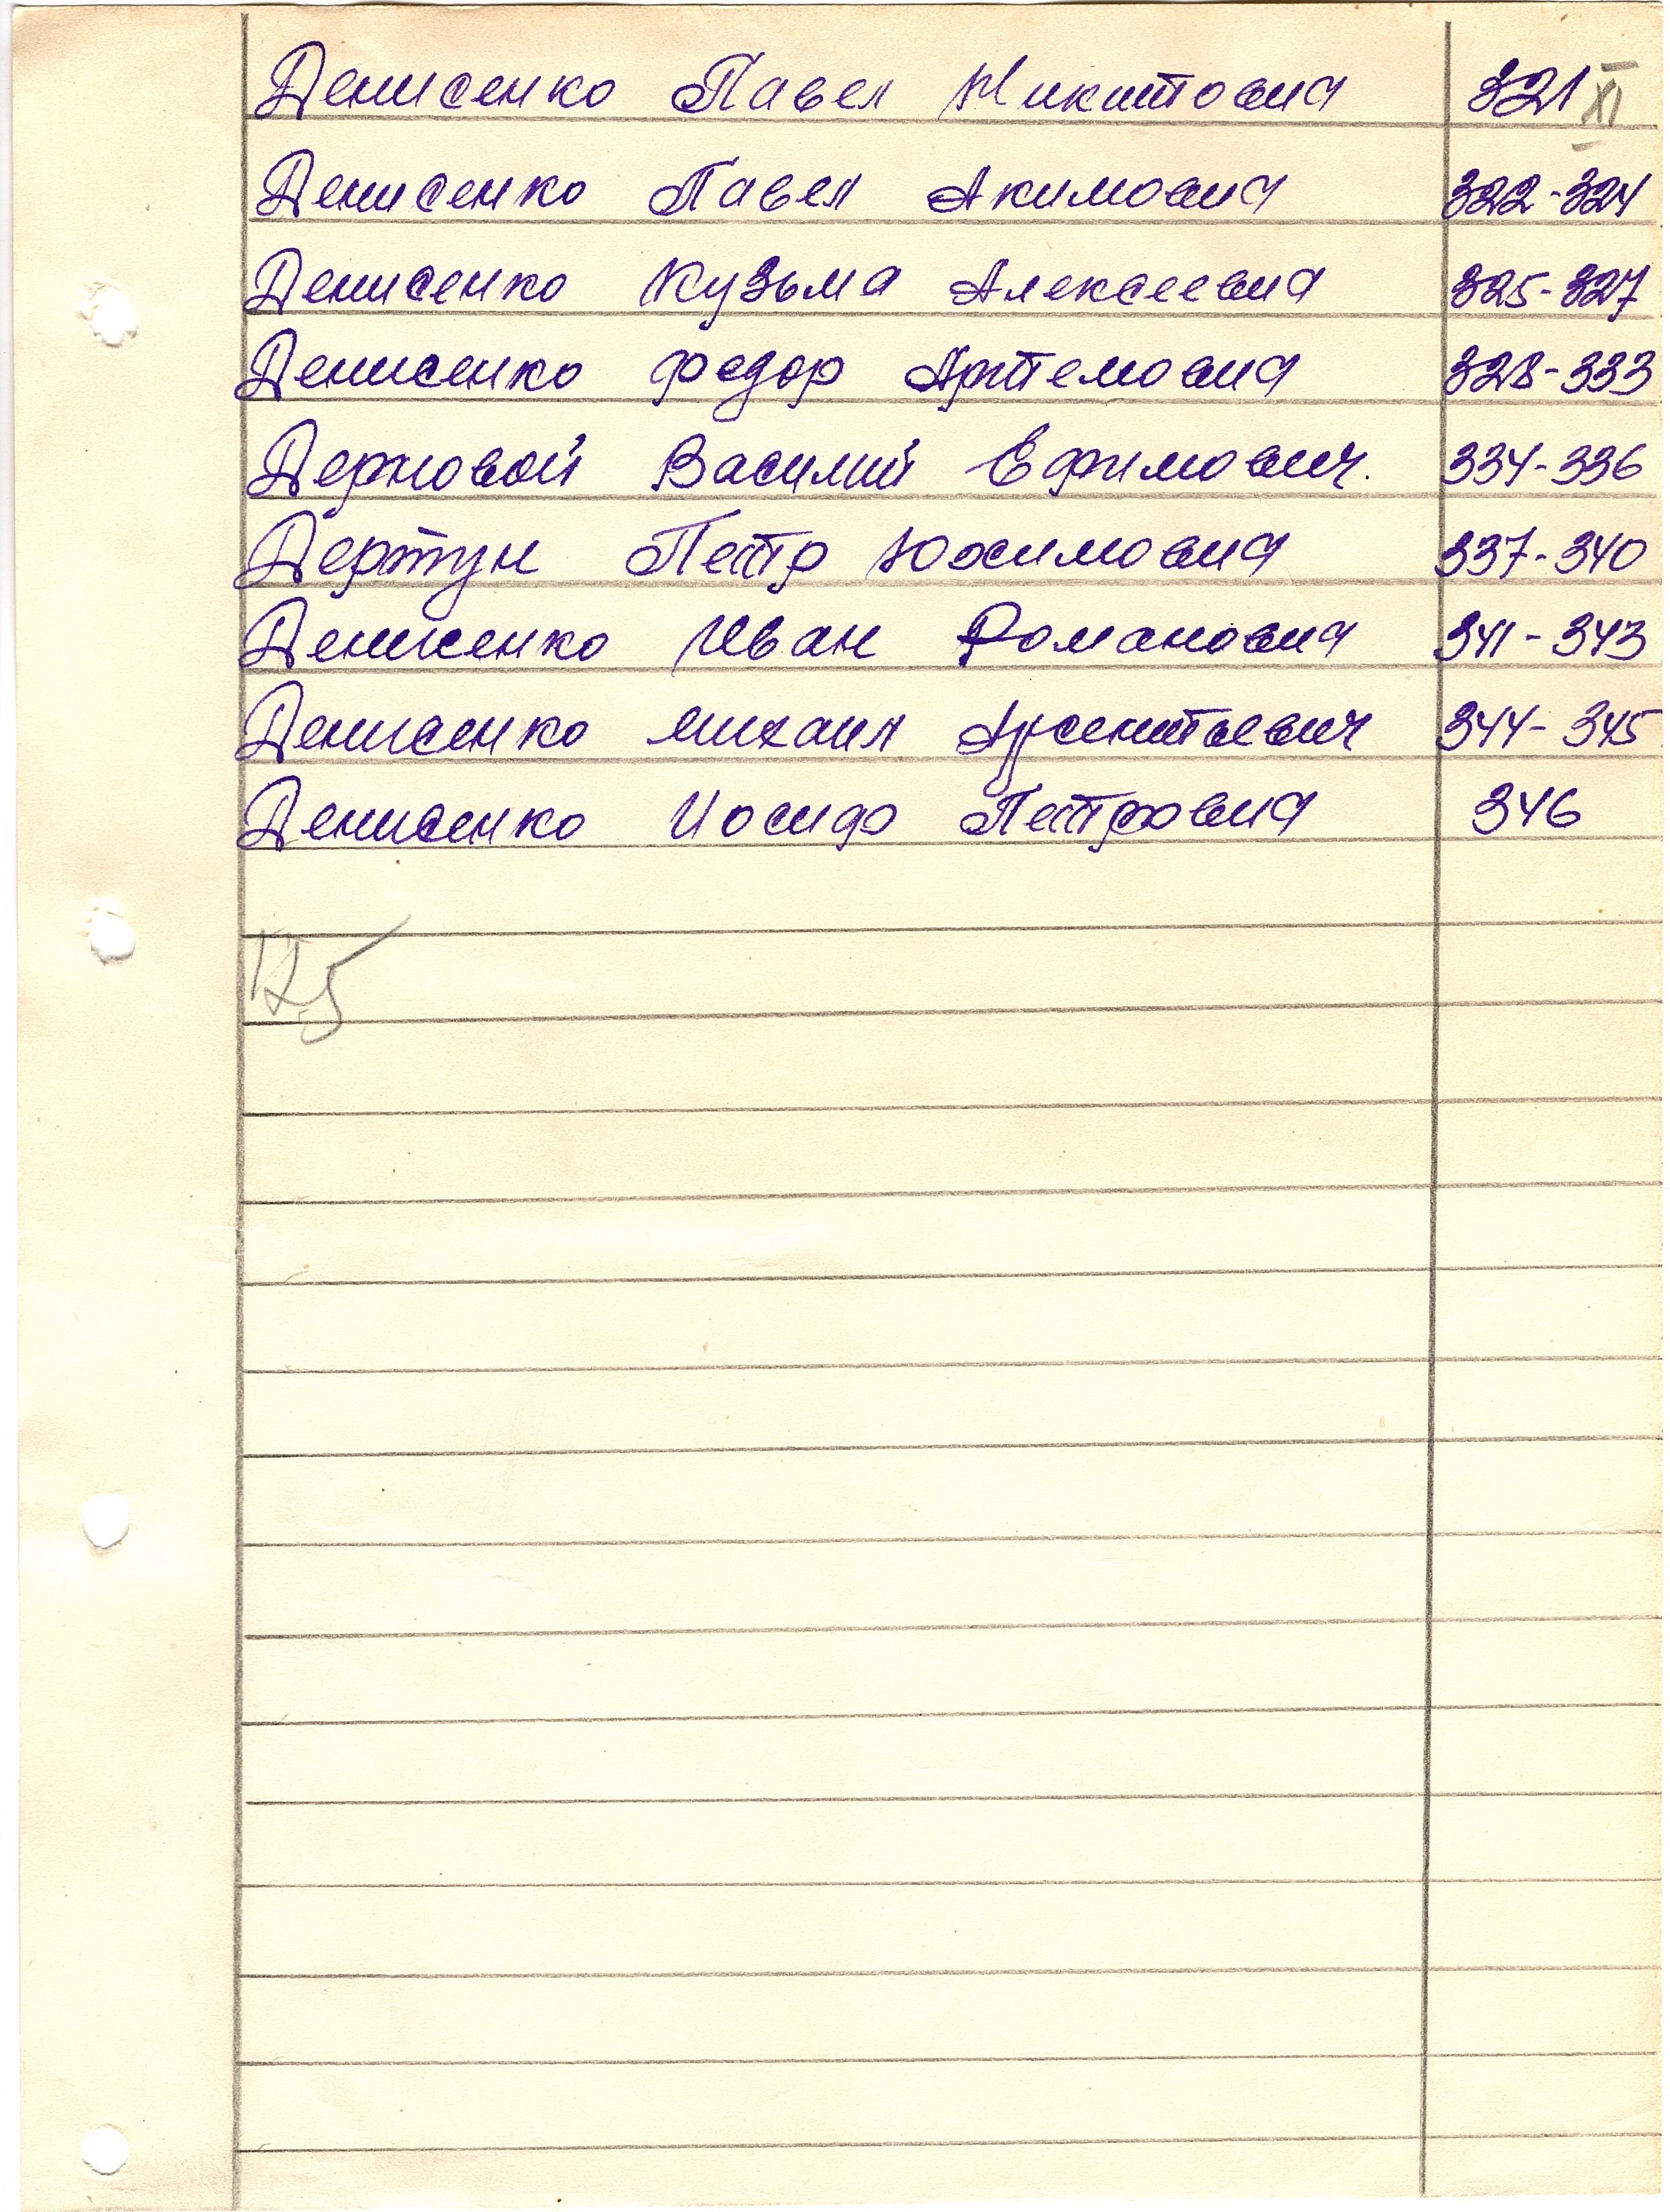 Денисенко Павел Никитович 321 XI
Денисенко Павел Акимович 322-324
Денисенко Кузьма Алексеевич 325-327
Денисенко Федор Артемович 328-333
Дерновой Василий Ефимович. 334-336
Дертун Петр Юхимович 337-340
Денисенко Иван Романович 341-343
Денисенко Михаил Арсентьевич 344-345
Денисенко Иосиф Петрович 346
125